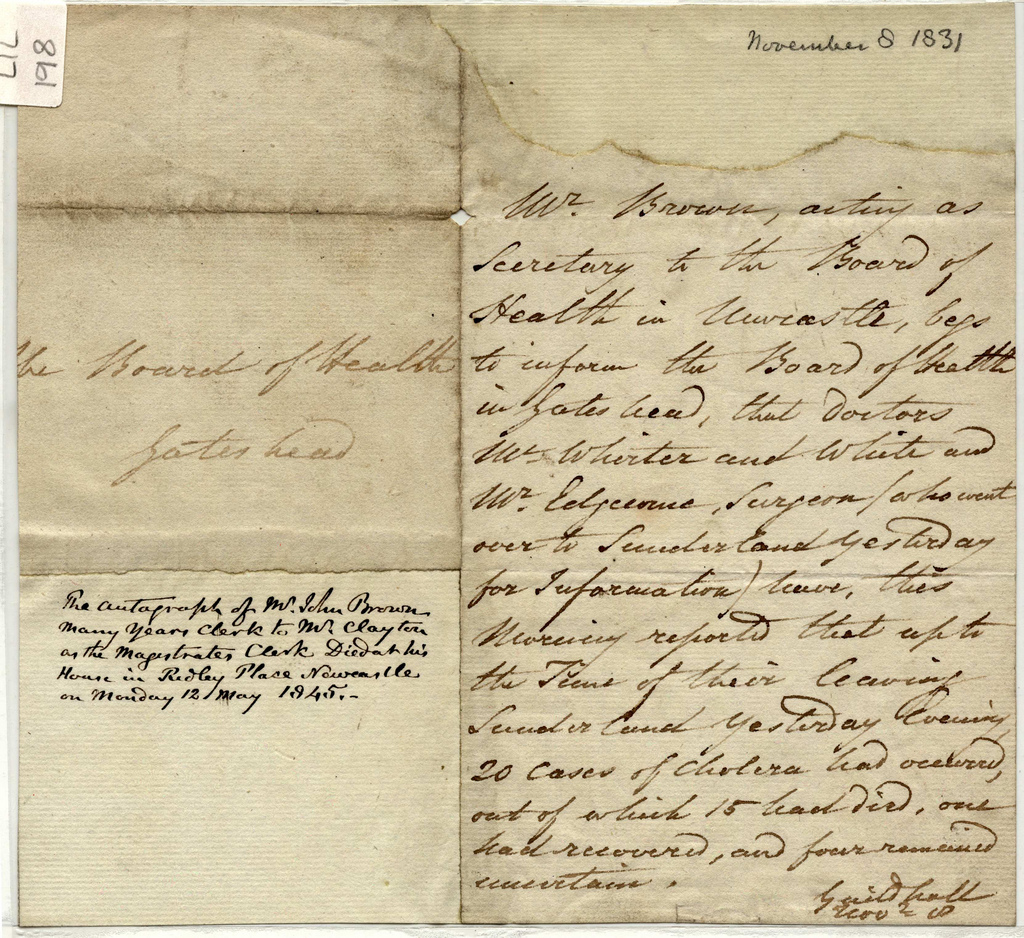 LIL
198
November 8 1831
the Board of Health
Gateshead
The autograph of Mr. John Brown
many Years Clerk to Mr. Clayton
as the Magistrates Clerk Died at his
House in Ridley Place Newcastle
on Monday 12 May 1845.-
Mr. Brown, acting as
Secretary to the Board of
Health in Newcastle, begs
to inform the Board of Health
in Gateshead, that Doctors
Mc Whirter and White and
Mr. Edgcome, Surgeon (who went
over to Sunderland Yesterday
for Information) have, this
Morning reported that up to
the Time of their leaving
Sunderland Yesterday Evening,
20 Cases of Cholera had occurred,
out of which 15 had died, one
had recovered, and four remained
uncertain.
Guildhall
Novr 8